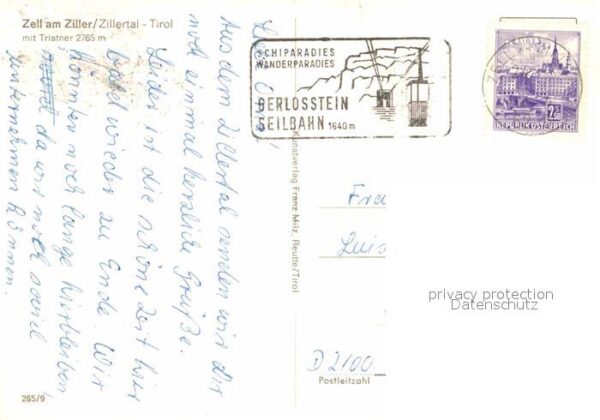 Zell am Ziller/Zillertal - Tirol
mit Tristner 2765 m
Aus dem Zillertal senden wir dir
noch einmal herzliche Grüße.
Leider ist die schöne Zeit hier
bald wieder zu Ende. Wir
könnten noch lange hierbleiben,
da wir noch soviel
unternehmen können.
265/9
Kunstverlag Franz Milz, Reutte/Tirol
SCHIPARADIES
WANDERPARADIES
GERLOSSTEIN
SEILBAHN 1640 m
2.50
REPUBLIK ÖSTERREICH
Luis
privacy protection
Datenschutz
D 2100
Postleitzahl